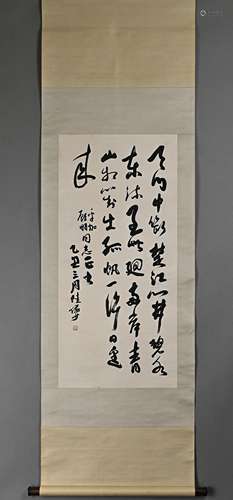 天门中断楚江开碧水
东流至此廻两岸青
山相对出孤帆一片日边
来
同志正
乙丑三月陆俨少